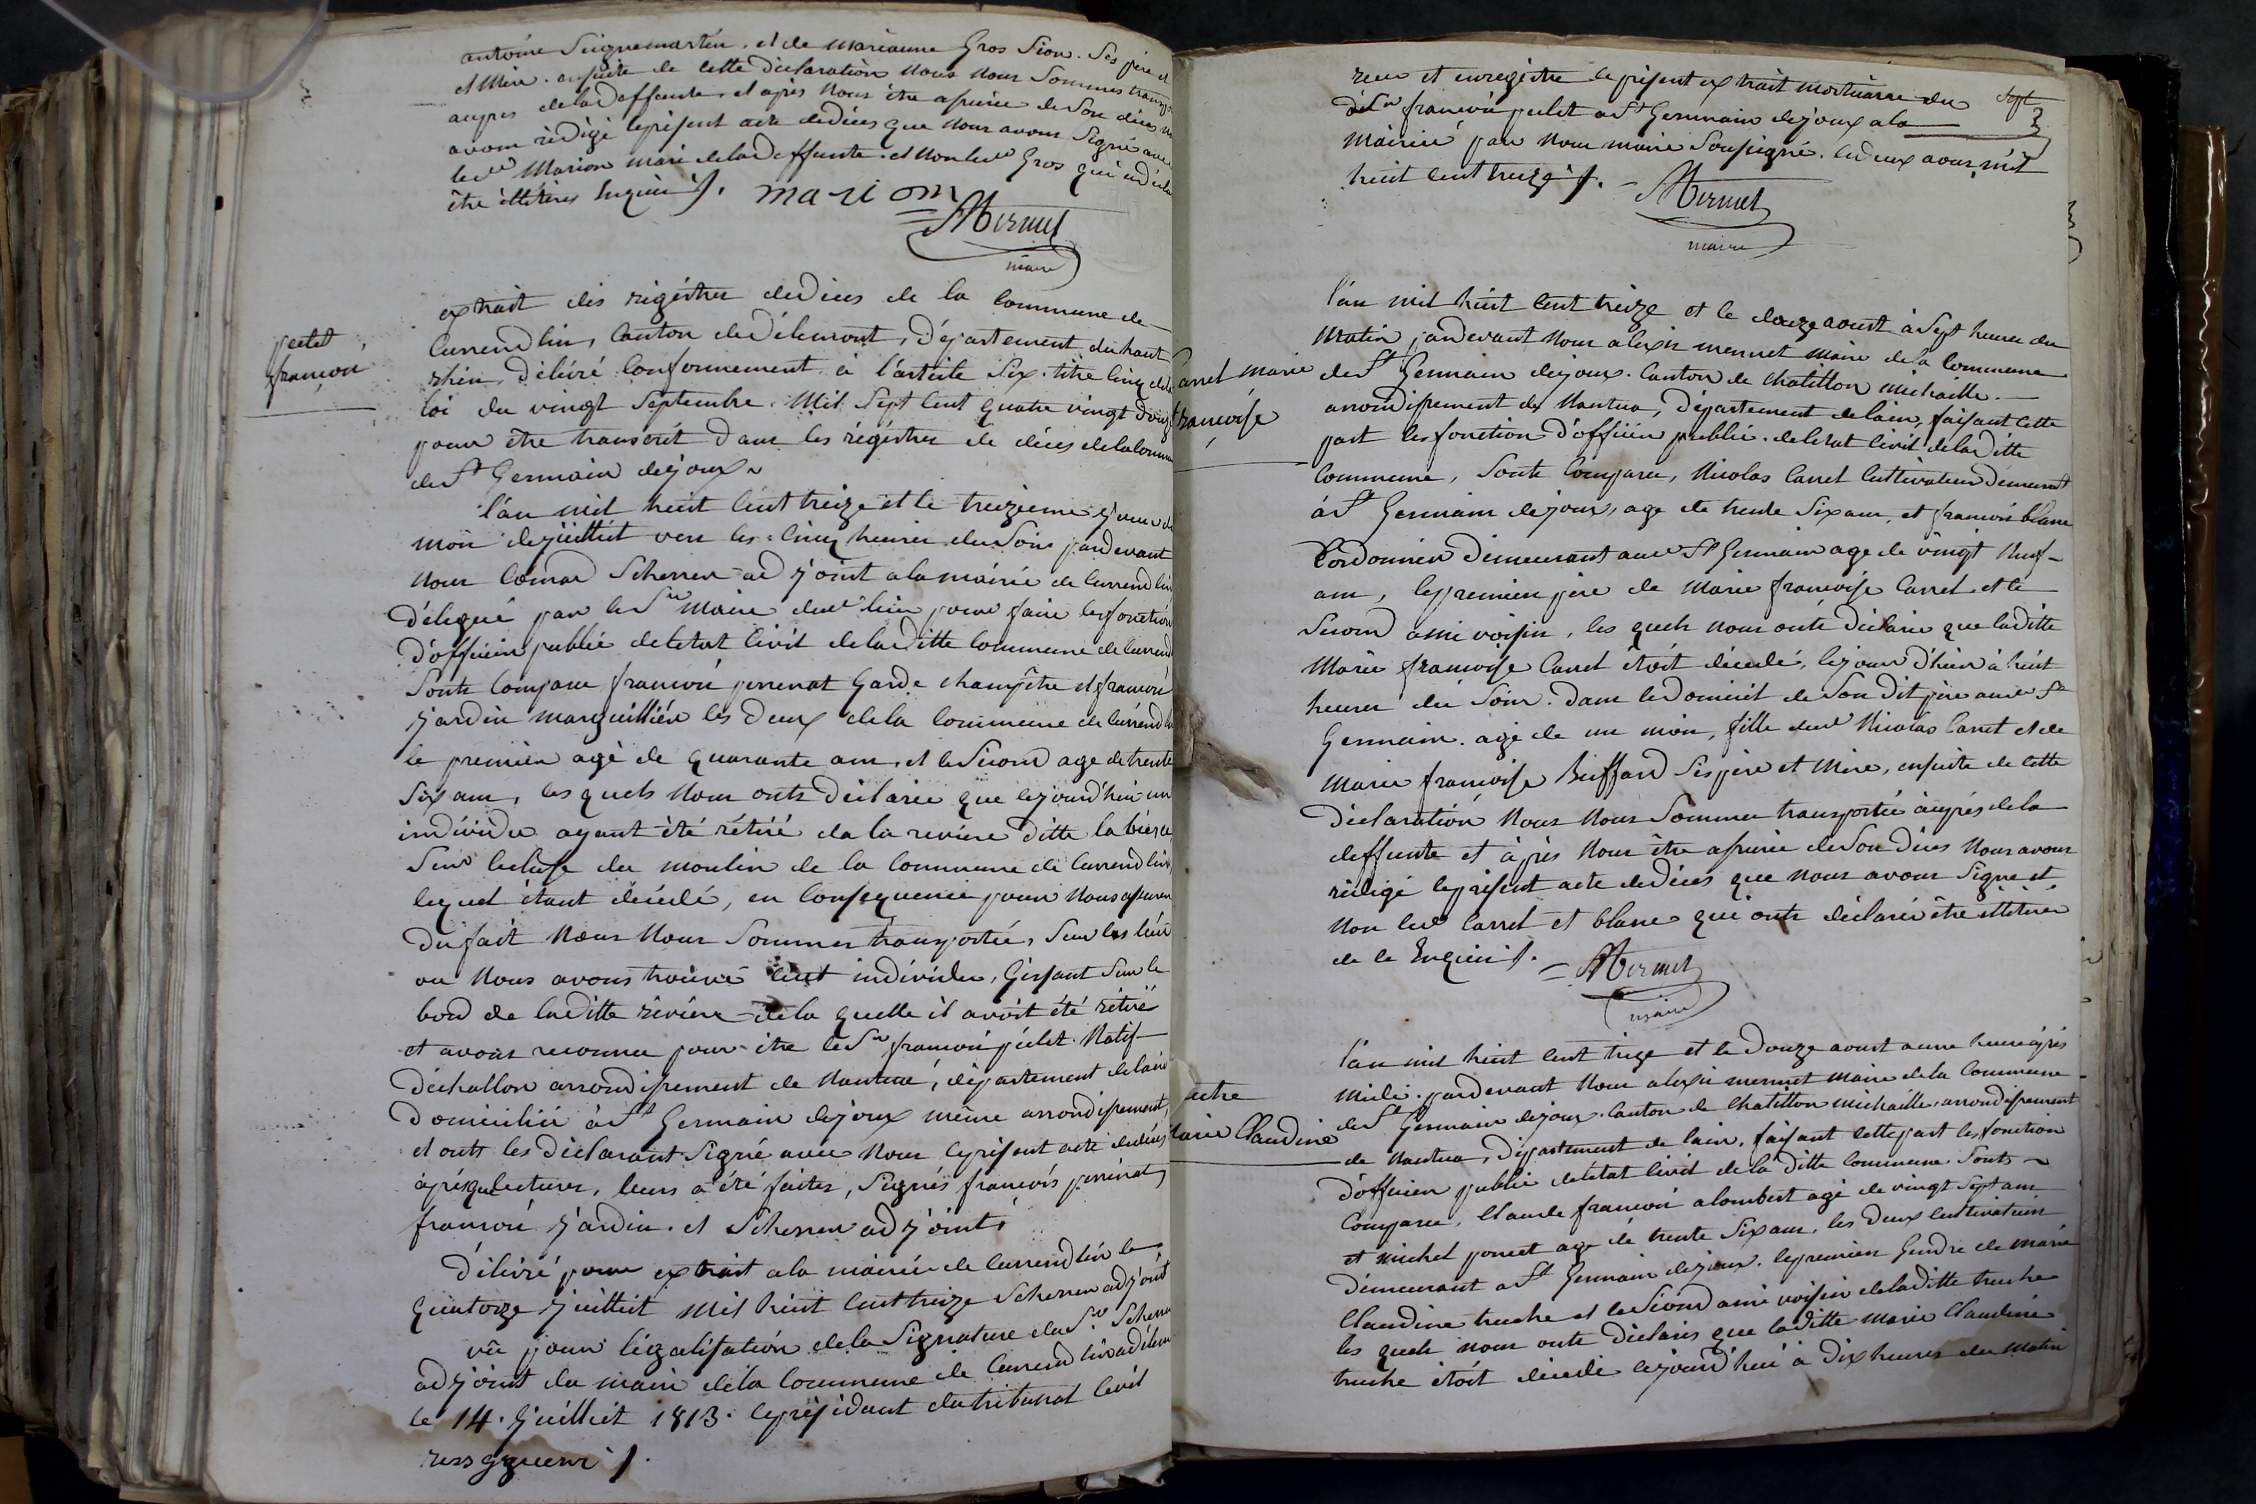 antoine Seignemartin, et de marianne Gros Sion. Ses père et
et Mère. ensuite de cette déclaration Nous nous Sommes transp
aupres de lad deffunte, et après Nous être assurée de Son décès n
avons rédigé le présent acte dedécès que nous avons Signé avec
led Marion mari delad deffunte. et Non led Gros qui a décla
être illitéres Enquis ./. marion
Mermet
maire
petet
françoi
extrait dès régistre dedéces de la Commune de
Currendlin, Canton de Délemont, Département du haut
rhin, délivré Conformement à l'article Six. titre Cinq dela
loi du vingt Septembre. Mil Sept Cent quatre vingt douze
pour être transcrit Dans les régistre de décès dela Commun
de St Germain dejoux
l'an mil huit Cent treize et le treizieme jour du
moi dejuillet vers les Cinq heures du Soir pardevant
Nous Conrad Scherrer adjoint a la mairie de Currendlin
délégué par le Sr Maire dud lieu pour faire les fonction
D'officier publié de letat Civil de ladditte Commune de Currend
Sonts Comparu françoi perrenat Garde champêtre et françoi
jardin marguillier les Deux de la Commune de Currendlin
le premier agé de quarante ans, et le Second age de trente
Six ans, les quels Nous onts Déclarée que lejourd'hui un
individu ayant été rétiré de la rivière ditte la bierse
Sur lecluse du moulin de la Commune de Currendlin
lequel étant décédé, en Consequence pour Nous assurer
Du fait Nous Nous Sommes transportés, Sur les lieu
ou Nous avons trouvé Cest individu, Gissant Sur le
bord de laditte rivière de la quelle il avoit été rétiré
et avons reconnu pour être le Sr françoi pélet Natif
Déchallon arrondissement de Nantua, département de lain
Domicilié à St Germain dejoux même arrondissement,
et onts les Déclarant Signé avec Nous le présent acte dedécès
après que lecture, leurs a été faites, Signés françois perrinat
françoi jardin. et Scherrer adjoint
Délivré pour extrait a la mairie de Currendlin le
quatorze juillet mil huit Cent treize Scherrer adjoint
vû pour légalisation de la Signature du Sr Scherrer
adjoint du maire de la Commune de Currendlin a délem
le 14. juillet 1813. le président du tribunal Civil

reçu et enregistre le présent extrait mortuaire du
dit Sr françoi pelet a St Germain dejoux a la
Mairie par Nous maire Soussigné. le deux aout mil
huit Cent treize ./. Mermet
maire
Sept
Carret marie
françoise
l'an mil huit Cent treize et le douze aoust à Sept heures du
Matin pardevant Nous alexis mermet Maire de la Commune
de St Germain dejoux. Canton de Chatillon michaille.
arrondissement de Nantua, Département de lain, faisant Cette
part les fonction D'officier publié. de letat Civil de laditte
Commune, Sonts Comparu, Nicolas Carret Cultivateur Démeurant
à St Germain dejoux, age de trente Six ans, et françoi blanc
Cordonnier Démeurant aud St Germain age de vingt Neuf
ans, le premier père de Marie françoise Carret et le
Second ami voisin, les quels nous onts déclaré que laditte
Marie françoise Carret étoit décédé, lejour d'hier à huit
heures du Soir. Dans le Domicil de Son dit père aud St
Germain. agé de un moi, fille dud Nicolas Carret et de
Marie françoise Buffard Ses père et Mère, ensuite de Cette
Déclaration Nous Nous Sommes transportée auprès de la
deffunte et après Nous être assurée de Son Décès Nous avons
rédigé le présent acte dedéces que nous avons Signé et
Non led Carret et blanc qui onts déclarée être illitéres
de le Enquis ./. Mermet
maire
truche
Marie Claudine
l'an mil huit Cent treize et le Douze aoust a une heure après
Midi. pardevant Nous alexis mermet maire de la Commune
de St Germain dejoux. Canton de Chatillon michaille. arrondissement
de Nantua, Département de lain. faisant Cette part les fonction
d'officier publié de letat Civil de la ditte Commune Sonts
Comparu. Claude françoi alombert agé de vingt Sept ans
et michel poncet age de trente Six ans. les Deux Cultivateurs
Démeurant a St Germain dejoux. le premier Gendre de marie
Claudine truche et le Second ami voisin de laditte truche
les quels nous onts Déclarés que laditte marie Claudine
truche étoit décédé lejourd'hui à Dix heures du Matin